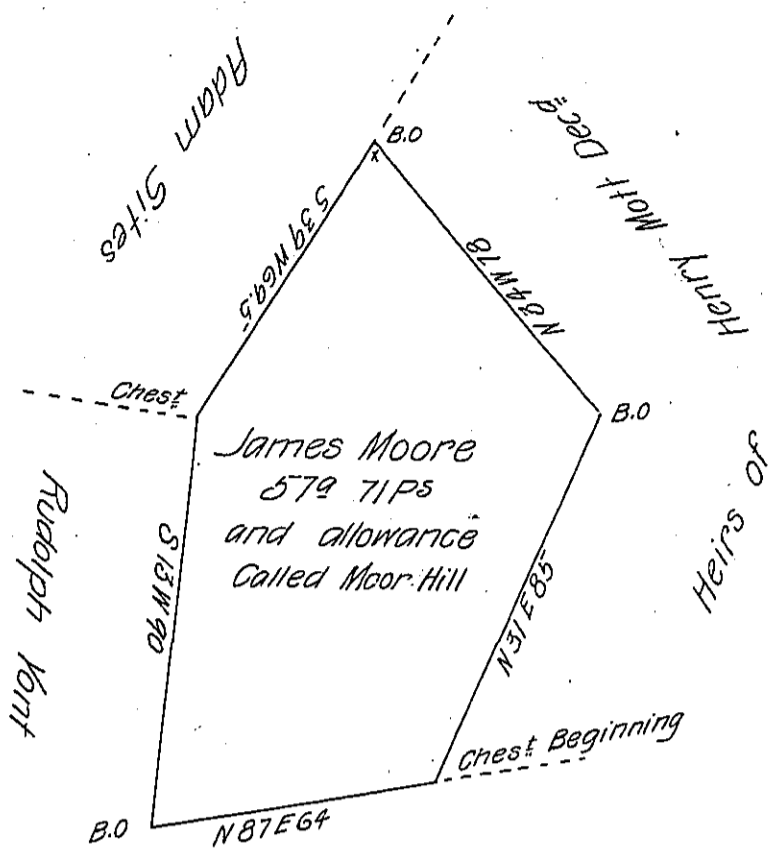 Adam Sites
Henry Mott Dec.d
Heirs of
B.O
x
S 39 W 69.5
N 34 W 78
Chest
B.O
James Moore
57a 71Ps
and allowance
Called Moor Hill
Rudolph Yont
S 13 W 90
N 31 E 85
Chest Beginning
B.O
N 87 E 64